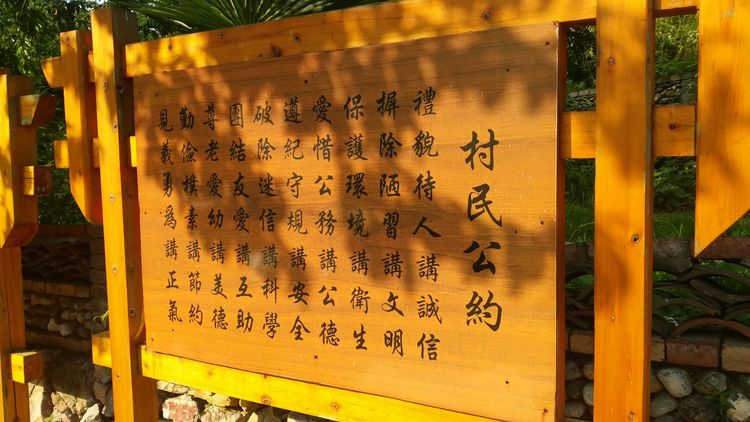 村民公約
禮貌待人講誠信
摒除陋習講文明
保護環境講衛生
愛惜公務講公德
遵紀守規講安全
破除迷信講科學
團結友愛講互助
尊老愛幼講美德
勤儉樸素講節約
見義勇為講正氣